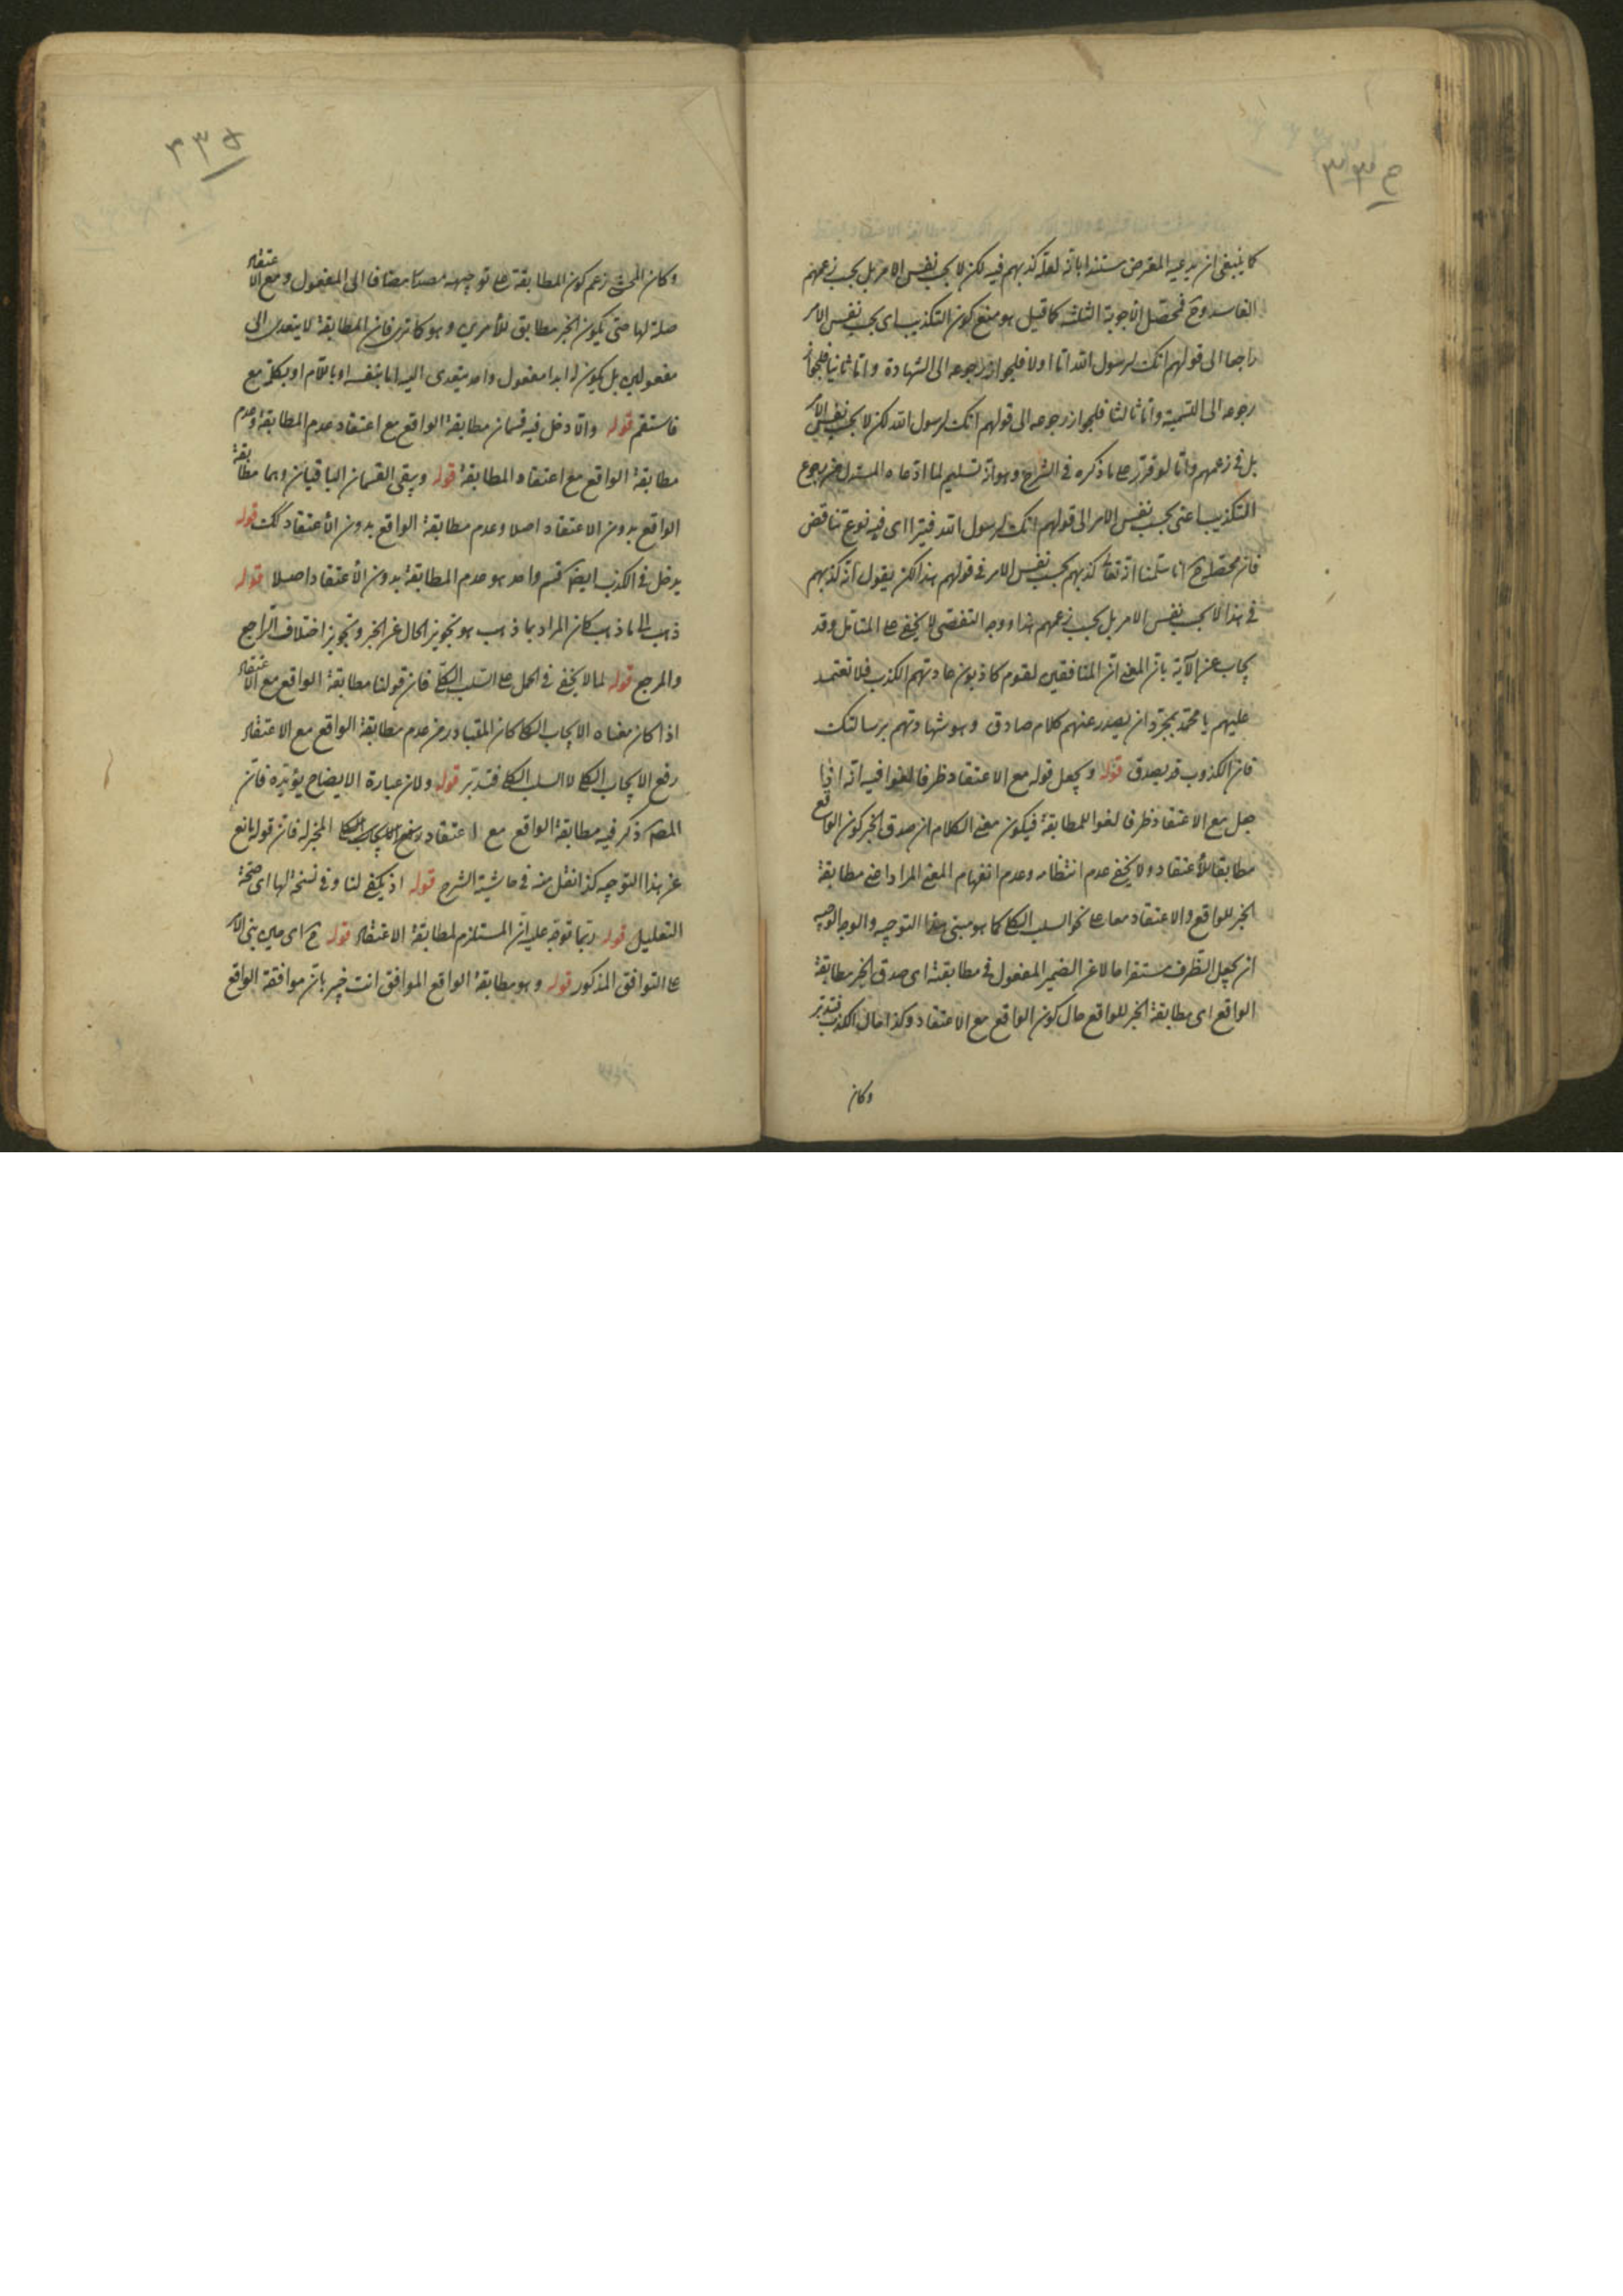 كما ينبغى ان يدعيه المعترض مستندا بانه لعله كذبهم فيه لكن لا بحسب نفس الامر بل بحسب زعمهم
الفاسد وح فمحصل الأجوبة الثلثة كما قيل هو منع كون التكذيب اى بحسب نفس الامر
راجعا الى قولهم انك لرسول الله اما اولا فلجواز رجوعه الى الشهادة واما ثانيا فلجواز
رجوعه الى التسمية واما ثالثا فلجواز رجوعه الى قولهم انك لرسول الله لكن لا بحسب نفس الامر
بل فى زعمهم واما لو قرر على ما ذكره فى الشرح وهو انه تسليم لما ادعاه المستدل من رجوع
التكذيب اعنى بحسب نفس الامر الى قولهم انك لرسول الله فيترااى فيه نوع تناقض
فان محصله ح انا سلمنا انه تعا كذبهم بحسب نفس الامر فى قولهم هذا لكن يقول انه كذبهم
فى هذا لا بحسب نفس الامر بل بحسب زعمهم هذا ووجه التفصى لا يخفى على المتامل وقد
يجاب عن الآية بان المعنى ان المنافقين لقوم كاذبون عادتهم الكذب فلا تعتمد
عليهم يا محمد بمجرد ان يصدر عنهم كلام صادق وهو شهادتهم برسالتك
فان الكذوب قد يصدق قوله ويجعل قوله مع الاعتقاد ظرفا لغوا فيه انه اذا
جعل مع الاعتقاد ظرفا لغوا للمطابقة فيكون معنى الكلام ان صدق الخبر كون الواقع
مطابقا للأعتقاد ولا يخفى عدم انتظامه وعدم انفهام المعنى المراد اعنى مطابقة
الخبر للواقع والاعتقاد معا على نحو السلب الكلى كما هو مبنى هذا التوجيه والوجه الوجيه
ان يجعل الظرف مستقرا حالا عن الضمير المفعول فى مطابقته اى صدق الخبر مطابقة
الواقع اى مطابقة الخبر للواقع حال كون الواقع مع الاعتقاد وكذا حال الكذب فتدبر
وكان
٣٣٥
وكان المحشى زعم كون المطابقة على توجيهه مصدرا مضافا الى المفعول ومع الاعتقاد
صلة لها حتى يكون الخبر مطابق للأمرين وهو كما ترى فان المطابقة لا يتعدى الى
مفعولين بل يكون له ابدا مفعول واحد يتعدى اليه اما بنفسه او باللام او بكلمة مع
فاستقم قوله والا دخل فيه قسمان مطابقة الواقع مع اعتقاد عدم المطابقة وعدم
مطابقة الواقع مع اعتقاد المطابقة قوله ويبقى القسمان الباقيان وهما مطابقة
الواقع بدون الاعتقاد اصلا وعدم مطابقة الواقع بدون الأعتقاد كك قوله
يدخل فى الكذب ايضا قسم واحد هو عدم المطابقة بدون الأعتقاد اصلا قوله
ذهب الى ما ذهب كان المراد بما ذهب هو تجويز الحال عن الخبر وتجويز اختلاف الراجع
والمرجع قوله لما لا يخفى فى الحمل على السلب الكلى فان قولنا مطابقة الواقع مع الاعتقاد
اذا كان معناه الايجاب الكلى كان المتبادر من عدم مطابقة الواقع مع الاعتقاد
رفع الايجاب الكلى لا السلب الكلى فتدبر قوله ولان عبارة الايضاح يؤيده فان
المصنف ذكر فيه مطابقة الواقع مع اعتقاد المخبر له فان قوله مانع
عن هذا التوجيه كذا نقل منه فى حاشية الشرح قوله اذ يكفى لنا وفى نسخة لها اى صحة
التعليل قوله ربما توجه عليه ان المستلزم لمطابقة الاعتقاد قوله ح اى حين بنى الامر
على التوافق المذكور قوله وهو مطابقة الواقع الموافق انت خبير بان موافقة الواقع